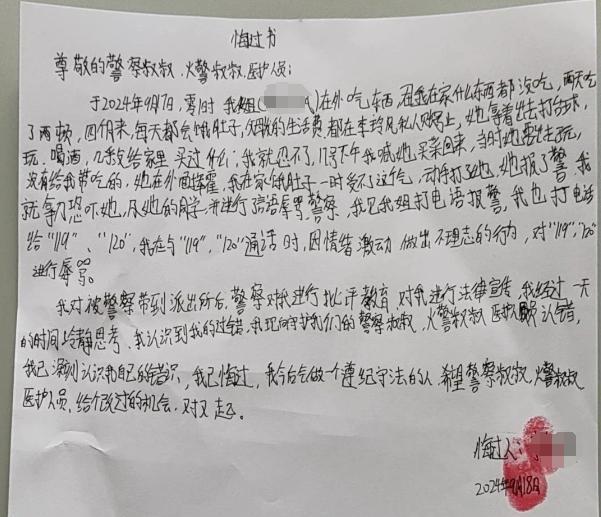 悔过书
尊敬的警察叔叔、火警叔叔、医护人员：
于2024年9月17日，零时 我姐( )在外吃东西，因我在家什么东西都没吃，两天吃
了两顿，四个月来，每天都会饿肚子，父母的生活费都在李玲风私人账号上，她拿着出去打台球，
玩，喝酒，几乎没给家里买过什么；我就忍不了，17号下午我喊她买菜回来，当时她要出去玩，
没有给我带吃的，她在外面挥霍，我在家饿肚子一时受不了这个气，动手打了她，她报了警，我
就拿刀恐吓她，及她的朋友，并进行言语辱骂警察，我见我姐打电话报警，我也打电话
给"119"、"120"，我在与"119"，"120"通话时，因情绪激动 做出不理志的行为，对"119"，"120"
进行辱骂。
我对被警察带到派出所后，警察对我进行批评教育，对我进行法律宣传，我经过一天
的时间冷静思考，我认识到我的过错，我现向守护我们的警察叔叔，火警叔叔 医护人员 认错，
我已深刻认识我自己的错识，我已悔过，我今后会做一个遵纪守法的人 希望警察叔叔，火警叔叔
医护人员，给个改过的机会，对不起。
悔过人：
2024年9月18日